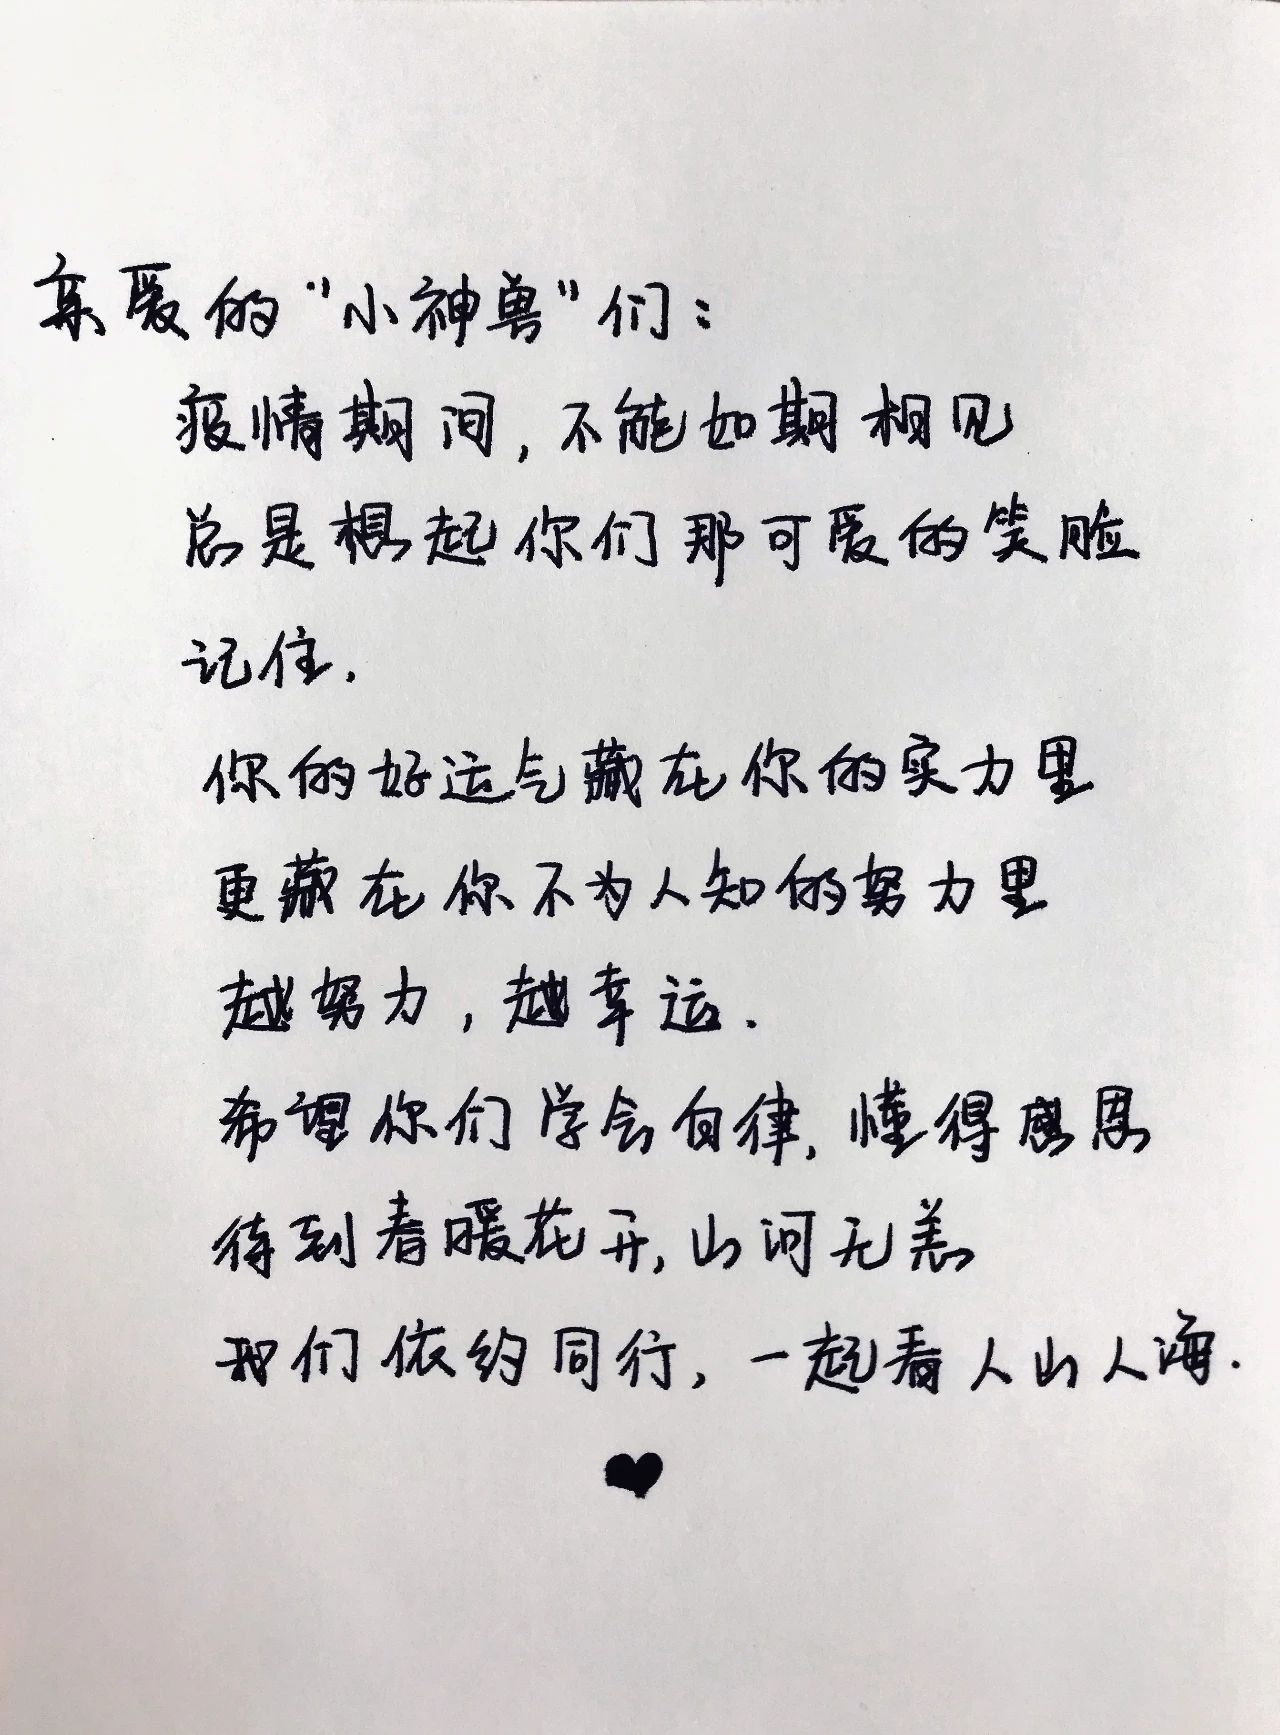 亲爱的“小神兽”们：
疫情期间，不能如期相见
总是想起你们那可爱的笑脸
记住.
你的好运气藏在你的实力里
更藏在你不为人知的努力里
越努力，越幸运.
希望你们学会自律，懂得感恩
待到春暖花开，山河无恙
我们依约同行，一起看人山人海.